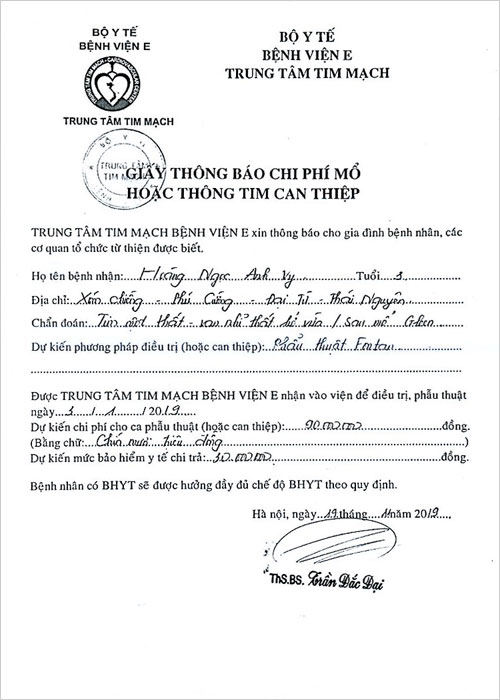 BỘ Y TẾ
BỆNH VIỆN E
TRUNG TÂM TIM MẠCH - CARDIOVASCULAR CENTER
TRUNG TÂM TIM MẠCH
BỘ Y TẾ
BỆNH VIỆN E
TRUNG TÂM TIM MẠCH
BỘ Y
TRUNG TÂM
TIM MẠCH
GIẤY THÔNG BÁO CHI PHÍ MỔ
HOẶC THÔNG TIM CAN THIỆP
TRUNG TÂM TIM MẠCH BỆNH VIỆN E xin thông báo cho gia đình bệnh nhân, các
cơ quan tổ chức từ thiện được biết.
Họ tên bệnh nhân: Hoàng Ngọc Anh Vy Tuổi 3
Địa chỉ: Xóm Chiềng - Phú Cường - Đại Từ - Thái Nguyên
Chẩn đoán: Tim một thất - van nhĩ thất hở vừa / Sau mổ Glenn
Dự kiến phương pháp điều trị (hoặc can thiệp): Phẫu thuật Fontan
Được TRUNG TÂM TIM MẠCH BỆNH VIỆN E nhận vào viện để điều trị, phẫu thuật
ngày 3 / 1 / 2019
Dự kiến chi phí cho ca phẫu thuật (hoặc can thiệp): 90.000.000 đồng.
(Bằng chữ: Chín mươi triệu đồng)
Dự kiến mức bảo hiểm y tế chi trả: 30.000.000 đồng.
Bệnh nhân có BHYT sẽ được hưởng đầy đủ chế độ BHYT theo quy định.
Hà nội, ngày 19 tháng 2019
ThS.BS. Trần Đắc Đại